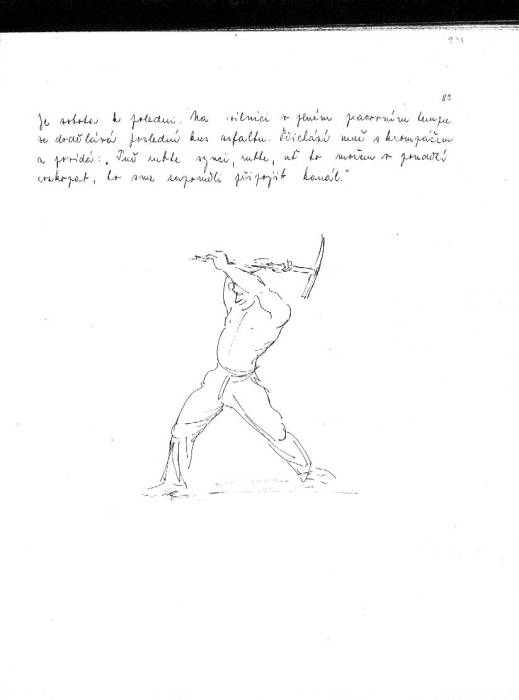 82
Je sobota k poledni. Na silnici v plném pracovním tempu
se dodělává poslední kus asfaltu. Přichází muž s krompáčem
a povídá: „ synci, , ať to možem v pondělí
rozkopat, bo sme zapomněli připojit kanál."